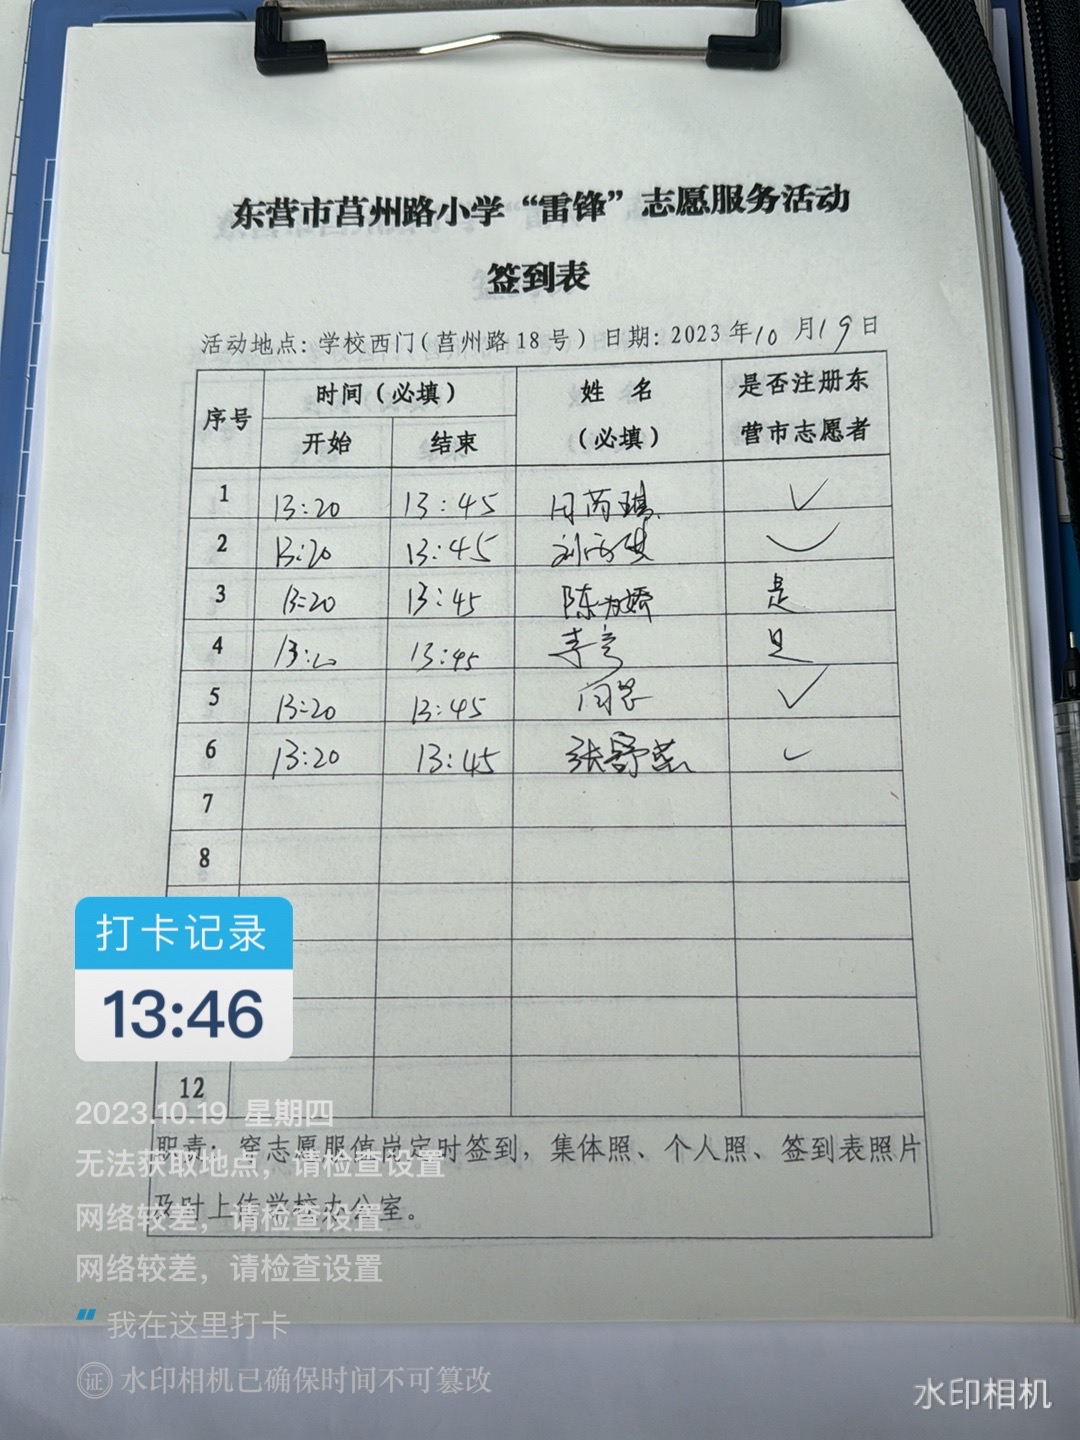 东营市莒州路小学“雷锋”志愿服务活动
签到表
活动地点:学校西门(莒州路18号)日期:2023年10月19日
序号 时间(必填) 姓 名 (必填) 是否注册东营市志愿者
开始 结束
1 13:20 13:45
2 13:20 13:45
3 13:20 13:45 陈为娇 是
4 13:20 13:45 李亮 是
5 13:20 13:45
6 13:20 13:45 张舒蓝
7
8
12
职责:穿志愿服值岗定时签到,集体照、个人照、签到表照片
及时上传学校办公室。
打卡记录
13:46
2023.10.19 星期四
无法获取地点,请检查设置
网络较差,请检查设置
网络较差,请检查设置
我在这里打卡
证 水印相机已确保时间不可篡改
水印相机